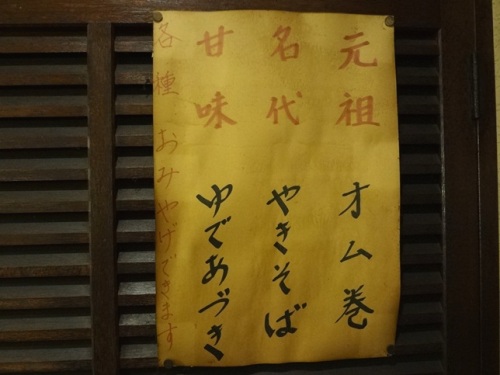 元祖 オム巻
名代 やきそば
甘味 ゆであづき
各種 おみやげできます